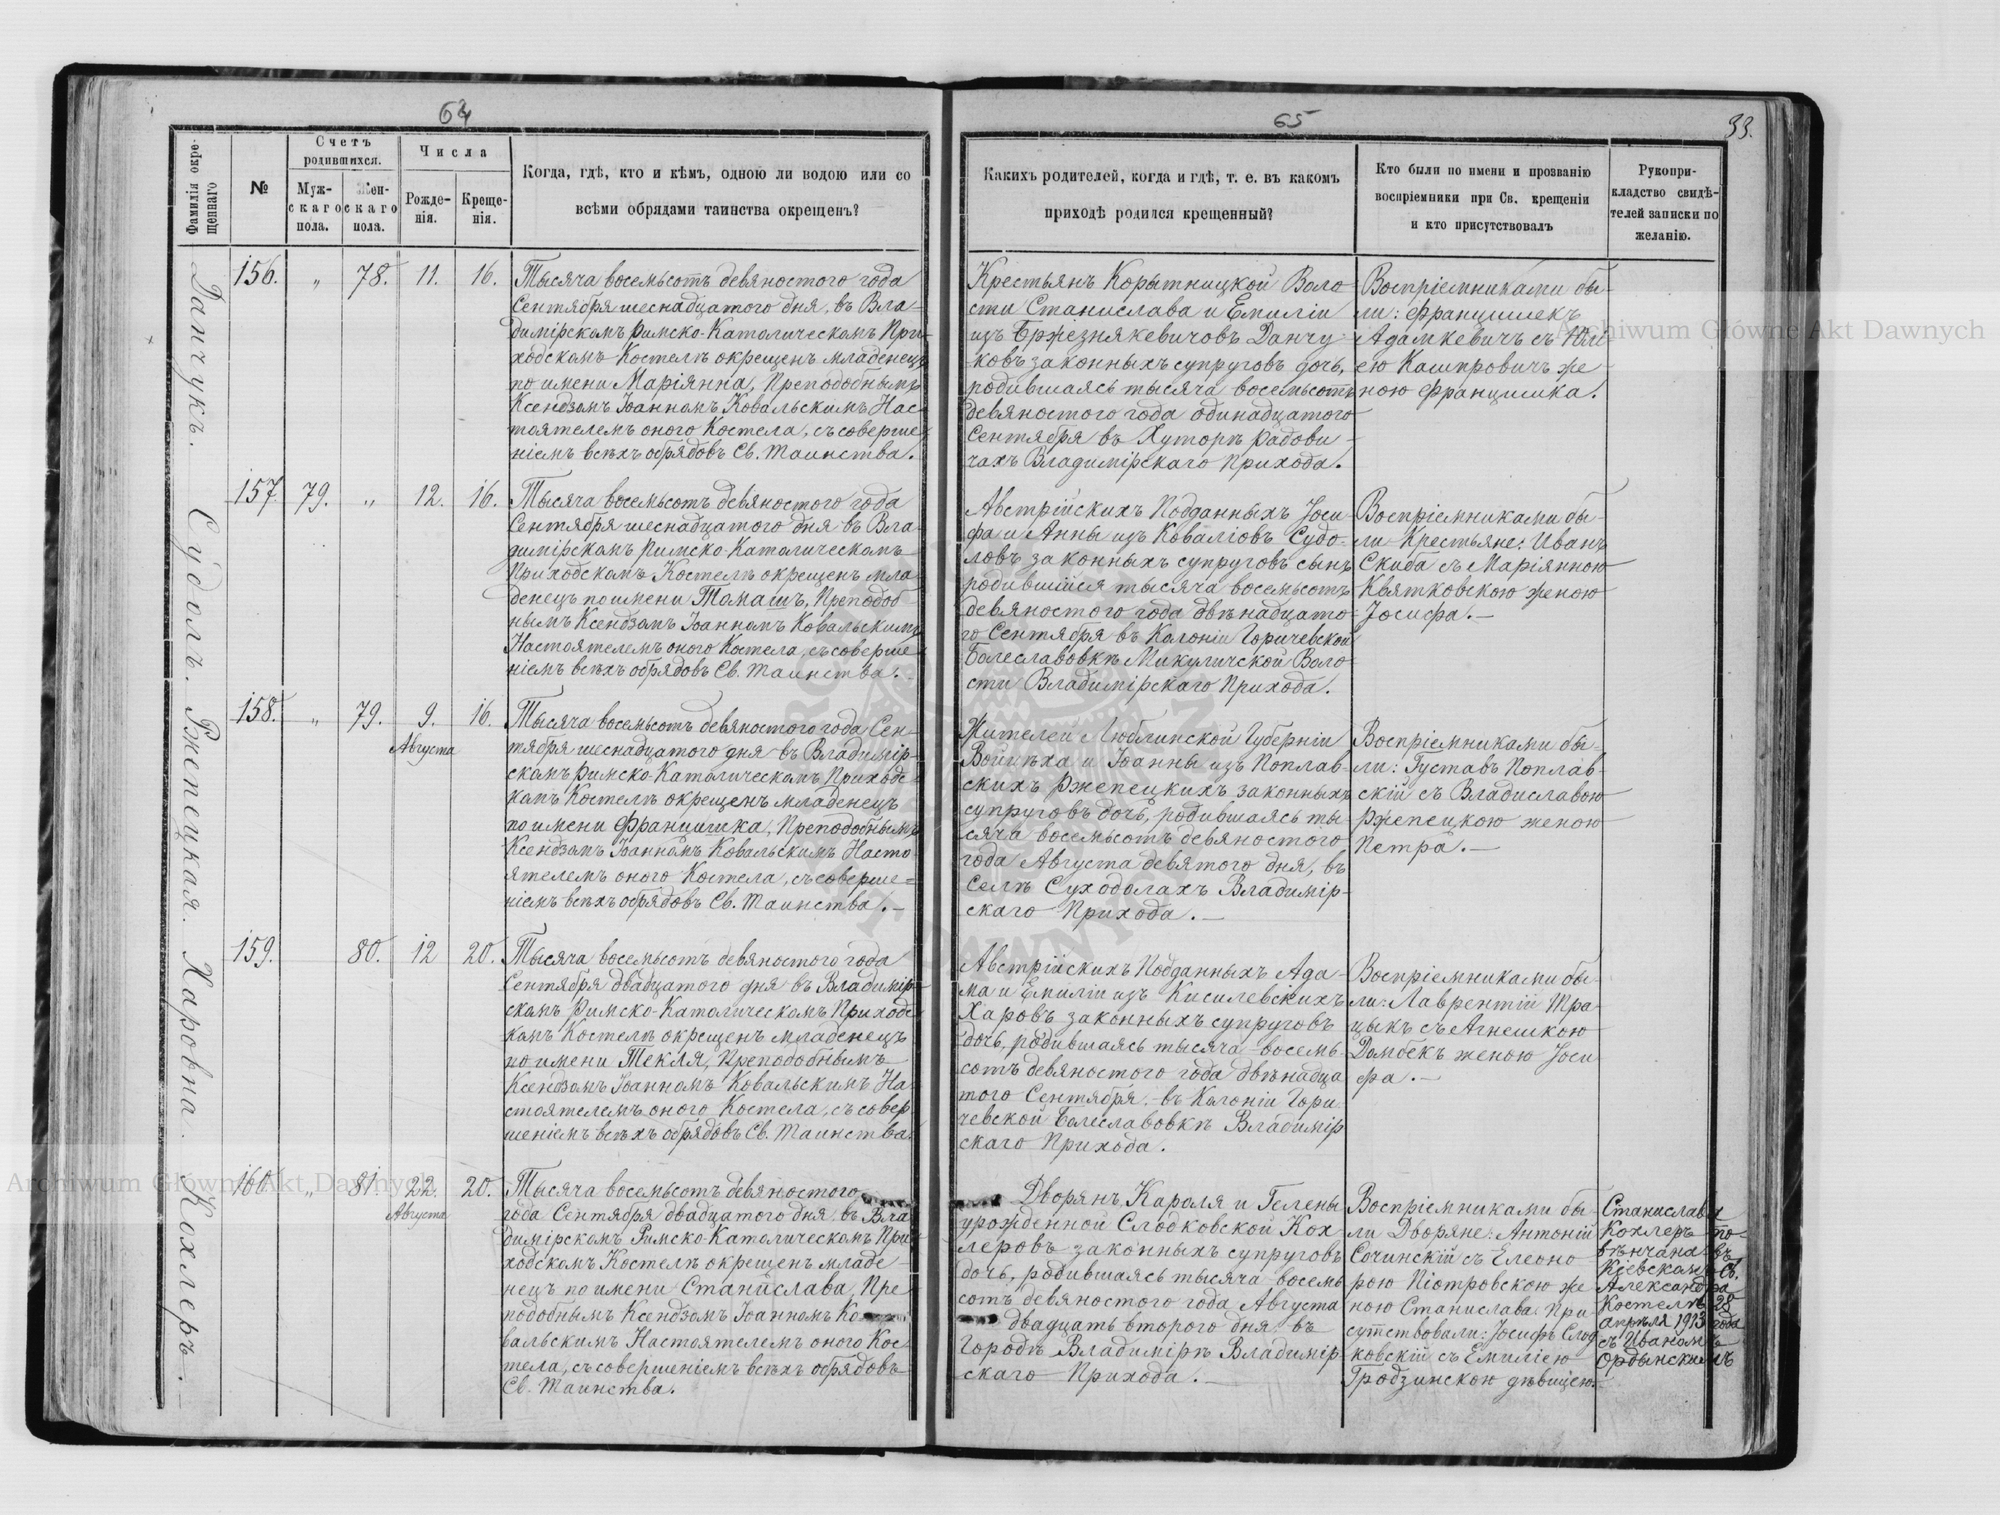 64
Фамилія окре-
щеннаго
№
Счетъ
родившихся.
Муж-
скаго
пола.
Жен-
скаго
пола.
Числа
Рожде-
нія.
Креще-
нія.
Когда, гдѣ, кто и кѣмъ, одною ли водою или со
всѣми обрядами таинства окрещенъ?
Данчукъ.
156.
„
78.
11.
16.
Тысяча восемьсотъ девяностого года
Сентября шеснадцатого дня, въ Вла-
димірскомъ Римско-Католическомъ При-
ходскомъ Костелѣ окрещенъ младенецъ
по имени Маріянна, Преподобнымъ
Ксендзомъ Іоанномъ Ковальскимъ Нас-
тоятелемъ оного Костела, съ соверше-
ніемъ всѣхъ обрядовъ Св. Таинства.
Судолъ.
157.
79.
„
12.
16.
Тысяча восемьсотъ девяностого года
Сентября шеснадцатого дня въ Вла-
димірскомъ Римско-Католическомъ
Приходскомъ Костелѣ окрещенъ мла-
денецъ по имени Томашъ, Преподоб-
нымъ Ксендзомъ Іоанномъ Ковальскимъ
Настоятелемъ оного Костела, съ соверше-
ніемъ всѣхъ обрядовъ Св. Таинства.
Ржепецкая.
158.
„
79.
9.
Августа
16.
Тысяча восемьсотъ девяностого года Сен-
тября шеснадцатого дня въ Владимір-
скомъ Римско-Католическомъ Приходс-
комъ Костелѣ окрещенъ младенецъ
по имени Францишка, Преподобнымъ
Ксендзомъ Іоанномъ Ковальскимъ Насто-
ятелемъ оного Костела, съ соверше-
ніемъ всѣхъ обрядовъ Св. Таинства.
Харовна.
159.
80.
12
20.
Тысяча восемьсотъ девяностого года
Сентября двадцатого дня въ Владимір-
скомъ Римско-Католическомъ Приходс-
комъ Костелѣ окрещенъ младенецъ
по имени Текля, Преподобнымъ
Ксендзомъ Іоанномъ Ковальскимъ На-
стоятелемъ оного Костела, съ совер-
шеніемъ всѣхъ обрядовъ Св. Таинства.
Кохлеръ.
160.
„
81.
22.
Августа
20.
Тысяча восемьсотъ девяностого
года Сентября двадцатого дня въ Вла-
димірскомъ Римско-Католическомъ При-
ходскомъ Костелѣ окрещенъ младе-
нецъ по имени Станислава, Пре-
подобнымъ Ксендзомъ Іоанномъ Ко-
вальскимъ Настоятелемъ оного Кос-
тела, съ совершеніемъ всѣхъ обрядовъ
Св. Таинства.
65
33.
Какихъ родителей, когда и гдѣ, т. е. въ какомъ
приходѣ родился крещенный?
Кто были по имени и прозванію
воспріемники при Св. крещеніи
и кто присутствовалъ
Рукопри-
кладство свидѣ-
телей записки по
желанію.
Крестьянъ Корытницкой Воло-
сти Станислава и Емиліи
изъ Бржезнякевичовъ Данчу-
ковъ законныхъ супруговъ дочь,
родившаясь тысяча восемьсотъ
девяностого года одинадцатого
Сентября въ Хуторѣ Радови-
чахъ Владимірскаго Прихода.
Воспріемниками бы-
ли: Францишекъ
Адамкевичъ съ Юлі-
ею Кашпровичъ же-
ною Францишка.
Австрійскихъ Подданныхъ Іоси-
фа и Анны изъ Коваліовъ Судо-
ловъ законныхъ супруговъ сынъ
родившійся тысяча восемьсотъ
девяностого года двѣнадцато-
го Сентября въ Колоніи Горичевской
Болеславовкѣ Микуличской Воло-
сти Владимірскаго Прихода.
Воспріемниками бы-
ли Крестьяне: Иванъ
Скиба съ Маріянною
Квятковскою женою
Іосифа.
Жителей Люблинской Губерніи
Войцѣха и Іоанны изъ Поплав-
скихъ Ржепецкихъ законныхъ
супруговъ дочь, родившаясь ты-
сяча восемьсотъ девяностого
года Августа девятого дня, въ
Селѣ Суходолахъ Владимір-
скаго Прихода.
Воспріемниками бы-
ли: Густавъ Поплав-
скій съ Владиславою
Ржепецкою женою
Петра.
Австрійскихъ Подданныхъ Ада-
ма и Емиліи изъ Кисилевскихъ
Харовъ законныхъ супруговъ
дочь, родившаясь тысяча восемь-
сотъ девяностого года двѣнадца-
того Сентября въ Колоніи Гори-
чевской Болеславовкѣ Владимір-
скаго Прихода.
Воспріемниками бы-
ли: Лаврентій Тра-
цыкъ съ Агнешкою
Домбекъ женою Іоси-
фа.
Дворянъ Кароля и Гелены
урожденной Слодковской Кох-
леровъ законныхъ супруговъ
дочь, родившаясь тысяча восемь-
сотъ девяностого года Августа
двадцать второго дня въ
Городѣ Владимірѣ Владимір-
скаго Прихода.
Воспріемниками бы-
ли Дворяне: Антоній
Сочинскій съ Елеоно-
рою Піотровскою же-
ною Станислава. При-
сутствовали: Іосифъ Слод-
ковскій съ Емиліею
Гродзинскою дѣвицею.
Станислава
Кохлеръ по-
вѣнчана въ
Кіевскомъ Св.
Александра
Костелѣ 28
апрѣля 1913 года
съ Иваномъ
Ордынскимъ
Archiwum Główne Akt Dawnych
Archiwum Główne Akt Dawnych